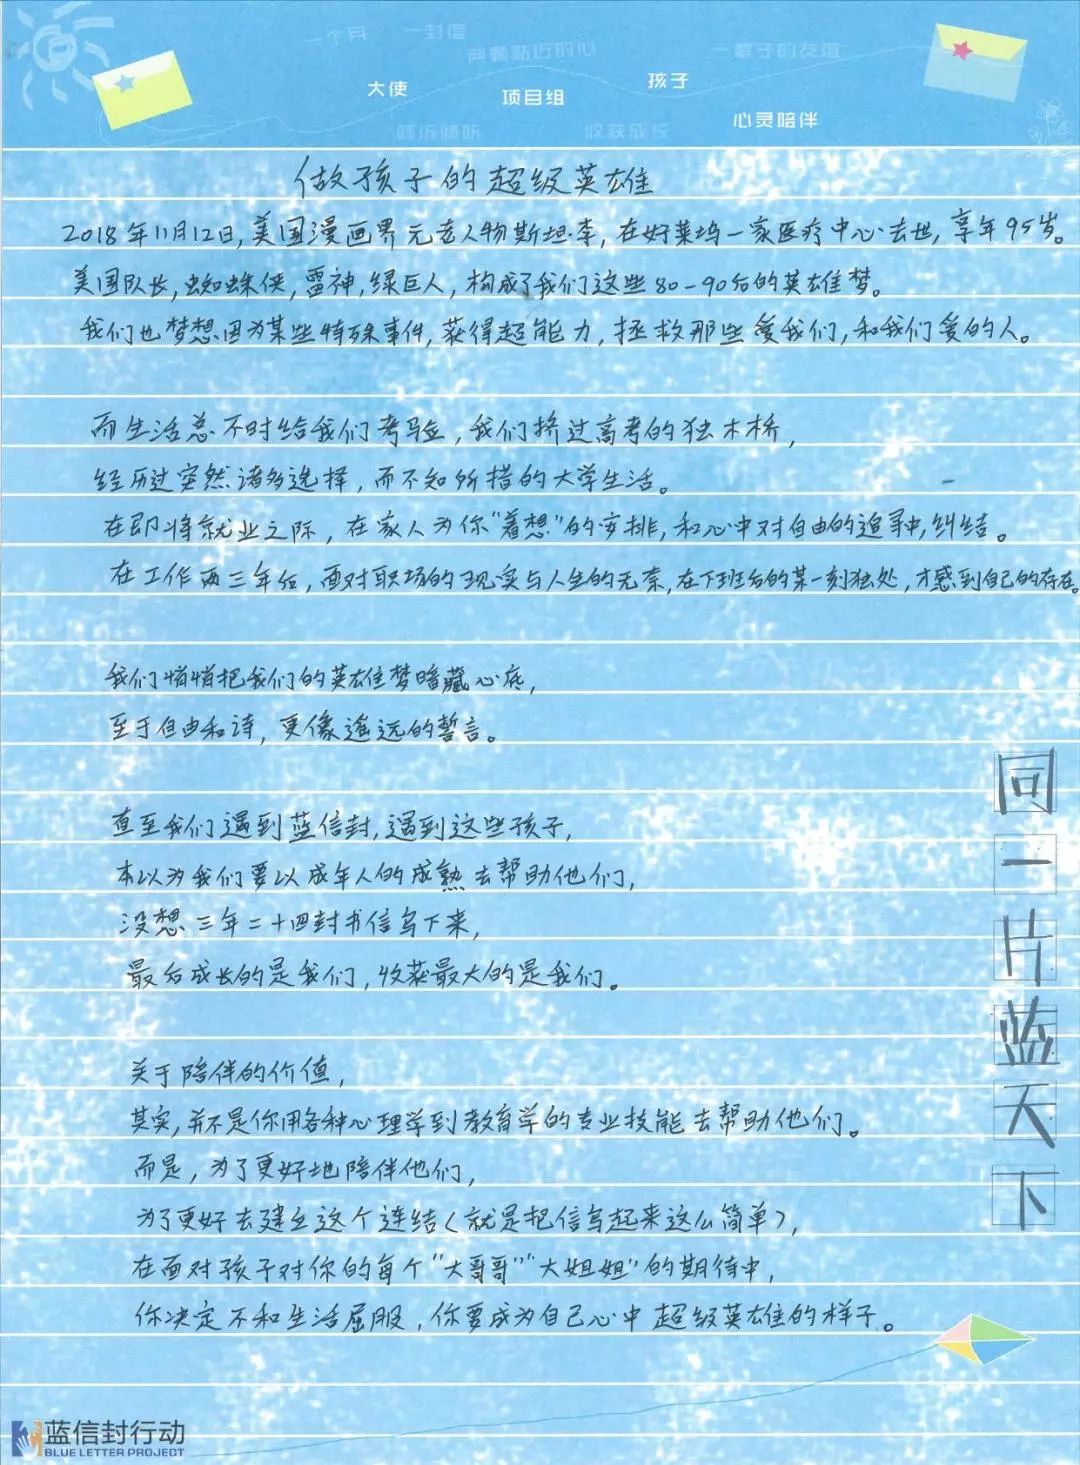 一个月 一封信
两颗贴近的心
一辈子的友谊
大使
项目组
孩子
心灵陪伴
倾诉倾听
收获成长
做孩子的超级英雄
2018年11月12日,美国漫画界元老人物斯坦·李,在好莱坞一家医疗中心去世,享年95岁。
美国队长,蜘蛛侠,雷神,绿巨人,构成了我们这些80-90后的英雄梦。
我们也梦想因为某些特殊事件,获得超能力,拯救那些爱我们,和我们爱的人。
而生活总不时给我们考验,我们挤过高考的独木桥,
经历过突然诸多选择,而不知所措的大学生活。
在即将就业之际,在家人为你“着想”的安排,和心中对自由的追寻中,纠结。
在工作两三年后,面对职场的现实与人生的无奈,在下班后的某一刻独处,才感到自己的存在。
我们悄悄把我们的英雄梦暗藏心底,
至于自由和诗,更像遥远的誓言。
直至我们遇到蓝信封,遇到这些孩子,
本以为我们要以成年人的成熟去帮助他们,
没想三年二十四封书信写下来,
最后成长的是我们,收获最大的是我们。
关于陪伴的价值,
其实,并不是你用各种心理学到教育学的专业技能去帮助他们。
而是,为了更好地陪伴他们,
为了更好去建立这个连结(就是把信写起来这么简单),
在面对孩子对你的每个“大哥哥”“大姐姐”的期待中,
你决定不和生活屈服,你要成为自己心中超级英雄的样子。
同一片蓝天下
蓝信封行动
BLUE LETTER PROJECT